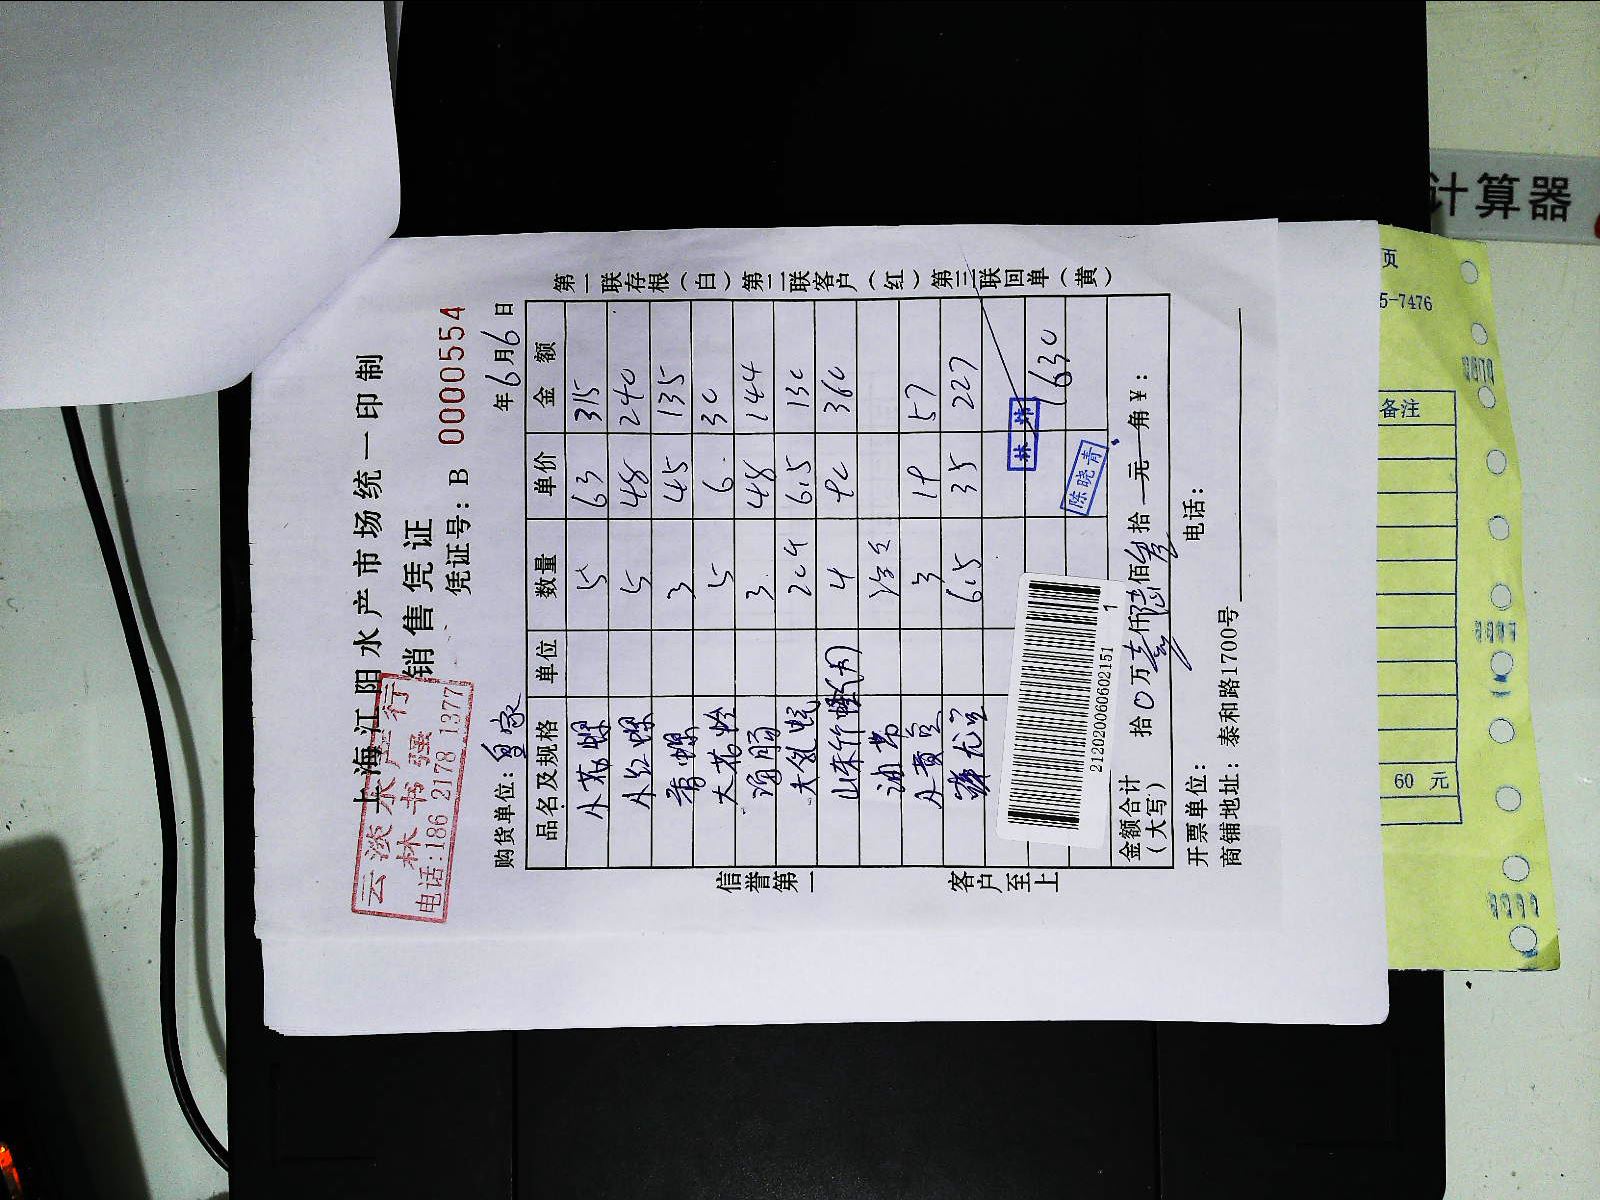 上海江阳水产市场统一印制
销售凭证
凭证号：B 0000554
云淡水产行
林书强
电话:186 2178 1377
购货单位：鱼家 年6月6日
品名及规格 单位 数量 单价 金额
小花螺 5 63 315
小红螺 5 48 240
香螺 3 45 135
大花蛤 5 6 30
海肠 3 48 144
20个 6.5 130
4 90 360
油带
小黄 3 19 57
6.5 35 227
林炜
1630
陈晓青
212020060602151 1
金额合计（大写） 拾0万壹仟陆佰叁拾一元一角￥：
开票单位： 电话：
商铺地址：泰和路1700号
信誉第一 客户至上
第一联存根（白）第二联客户（红）第三联回单（黄）
计算器
页
5-7476
备注
60 元